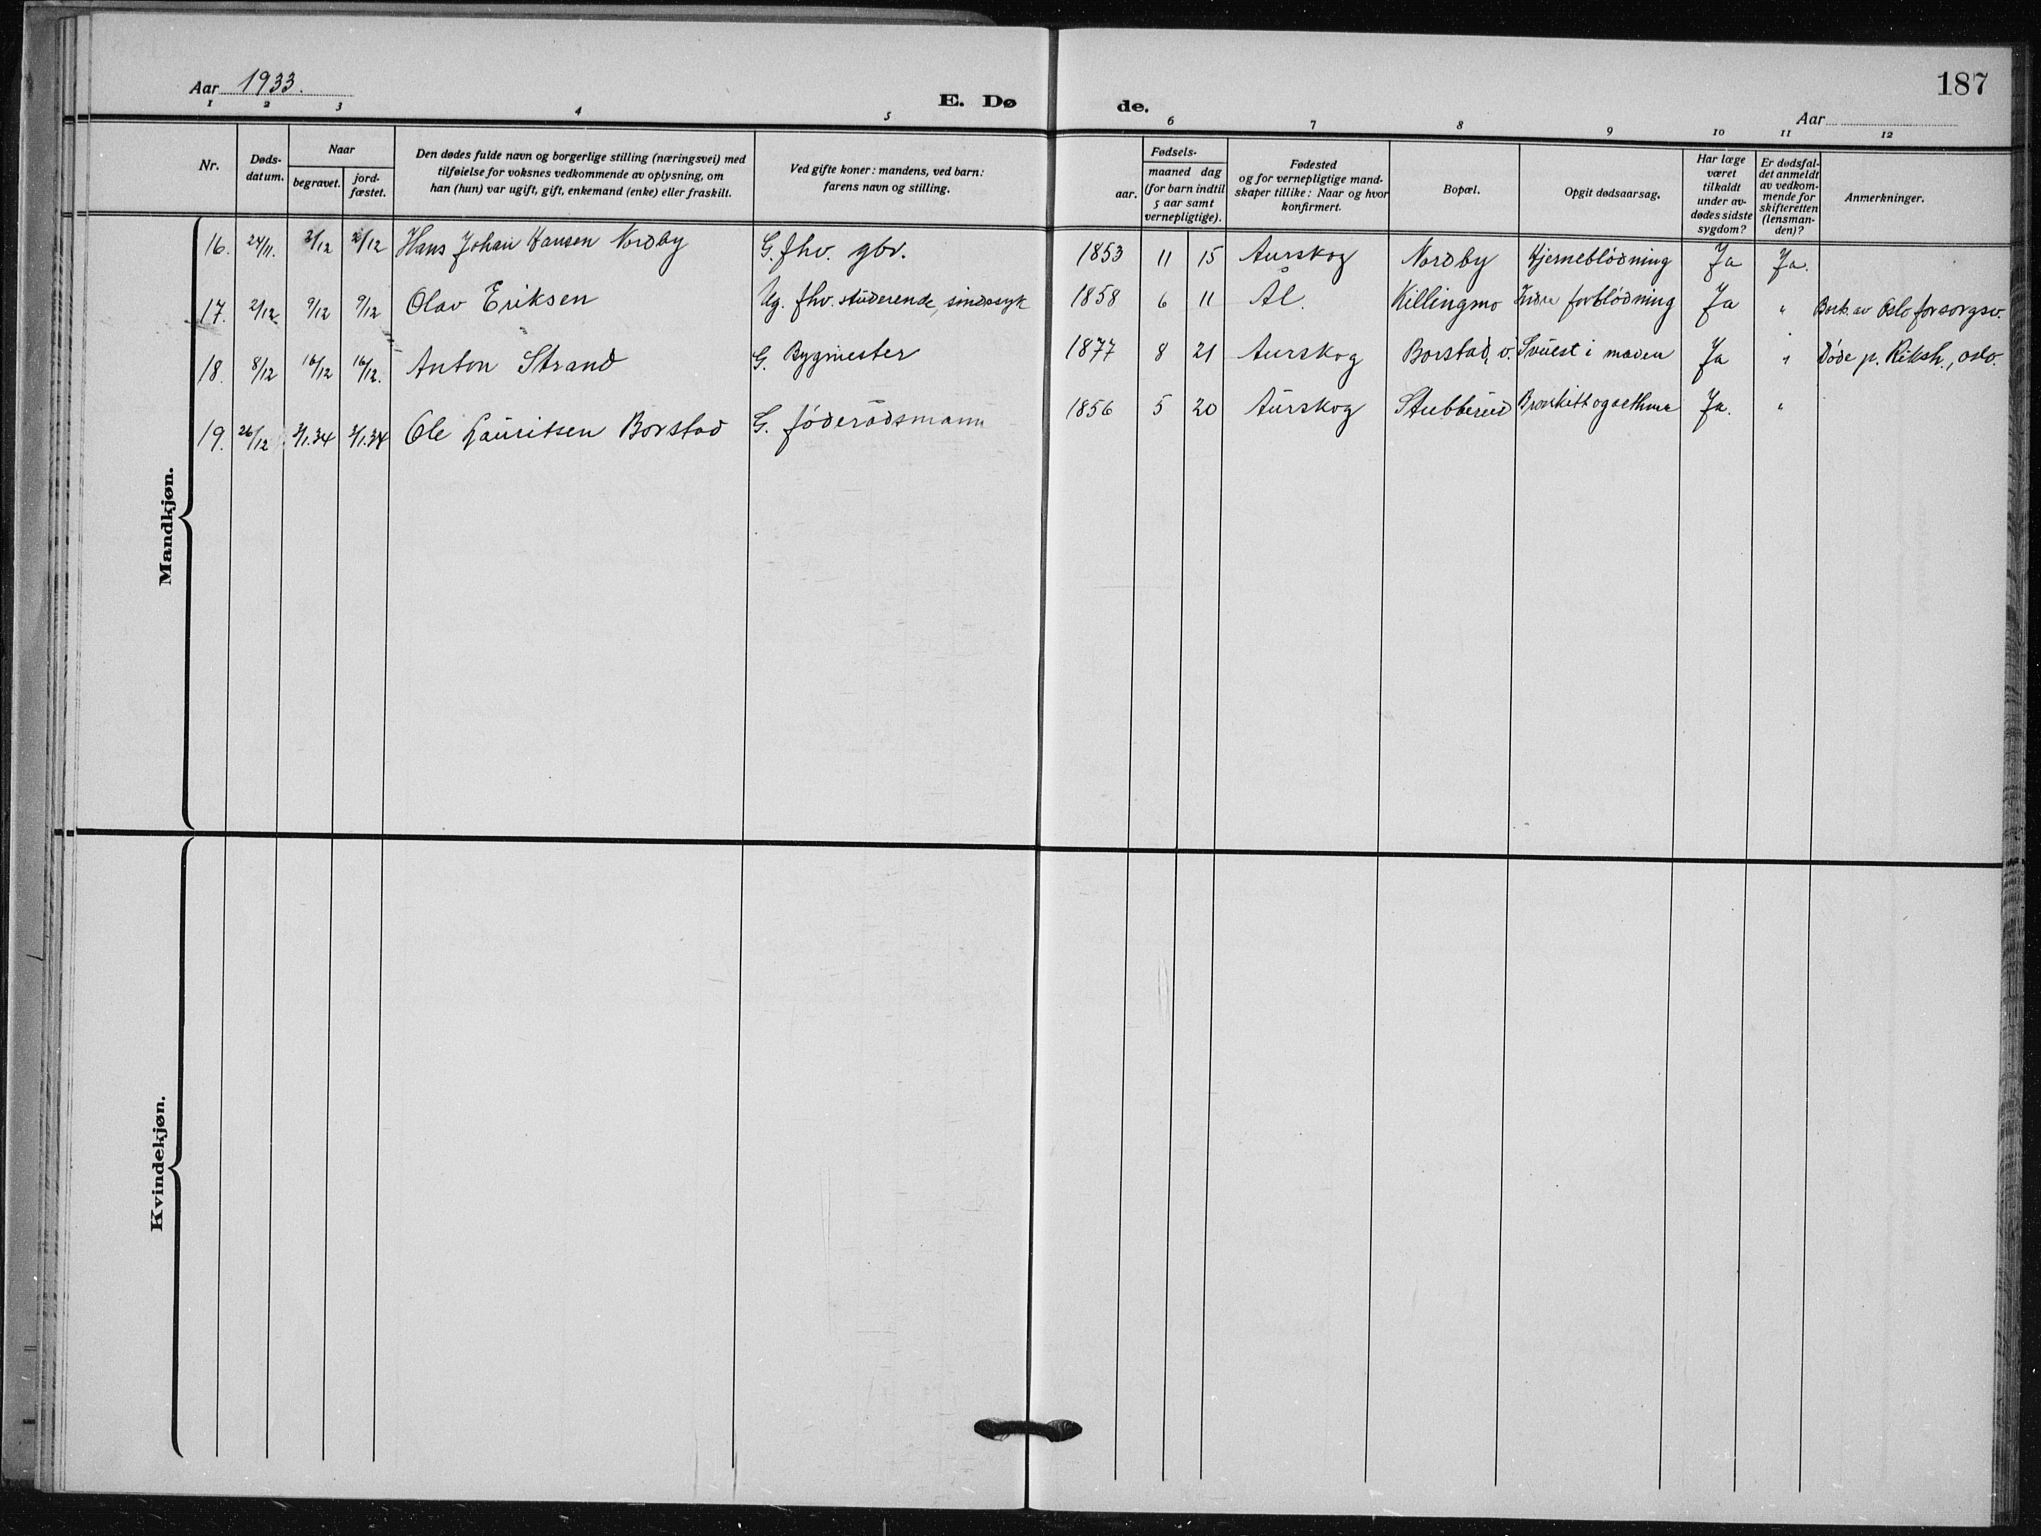 187
Aar 1933.
E. Døde.
Aar
1 2 3 4 5 6 7 8 9 10 11 12
Nr.
Døds-
datum.
Naar
begravet.
jord-
fæstet.
Den dødes fulde navn og borgerlige stilling (næringsvei) med
tilføielse for voksnes vedkommende av oplysning, om
han (hun) var ugift, gift, enkemand (enke) eller fraskilt.
Ved gifte koner: mandens, ved barn:
farens navn og stilling.
Fødsels-
aar. maaned dag
(for barn indtil
5 aar samt
vernepligtige).
Fødested
og for vernepligtige mand-
skaper tillike: Naar og hvor
konfirmert.
Bopæl.
Opgit dødsaarsag.
Har læge
været
tilkaldt
under av-
dødes sidste
sygdom?
Er dødsfal-
det anmeldt
av vedkom-
mende for
skifteretten
(lensman-
den)?
Anmerkninger.
Mandkjøn.
16. 24/11. 2/12 2/12 Hans Johan Hansen Nordby G. fhv. gbr. 1853 11 15 Aurskog Nordby Hjerneblødning Ja Ja.
17. 2/12 9/12 9/12 Olav Eriksen Ug. fhv. studerende, sindssyk 1858 6 11 Ål. Killingmo Indre forblødning Ja " av Oslo forsorgsv.
18. 8/12 16/12 16/12. Anton Strand G. Bygmester 1877 8 21 Aurskog Borstad, v. Svulst i maven Ja " Døde p. Riksh., Oslo.
19. 26/12 2/1.34 2/1.34 Ole Lauritsen Borstad G. føderådsmann 1856 5 20 Aurskog Stubberud Bronkitt og asthma Ja. "
Kvindekjøn.